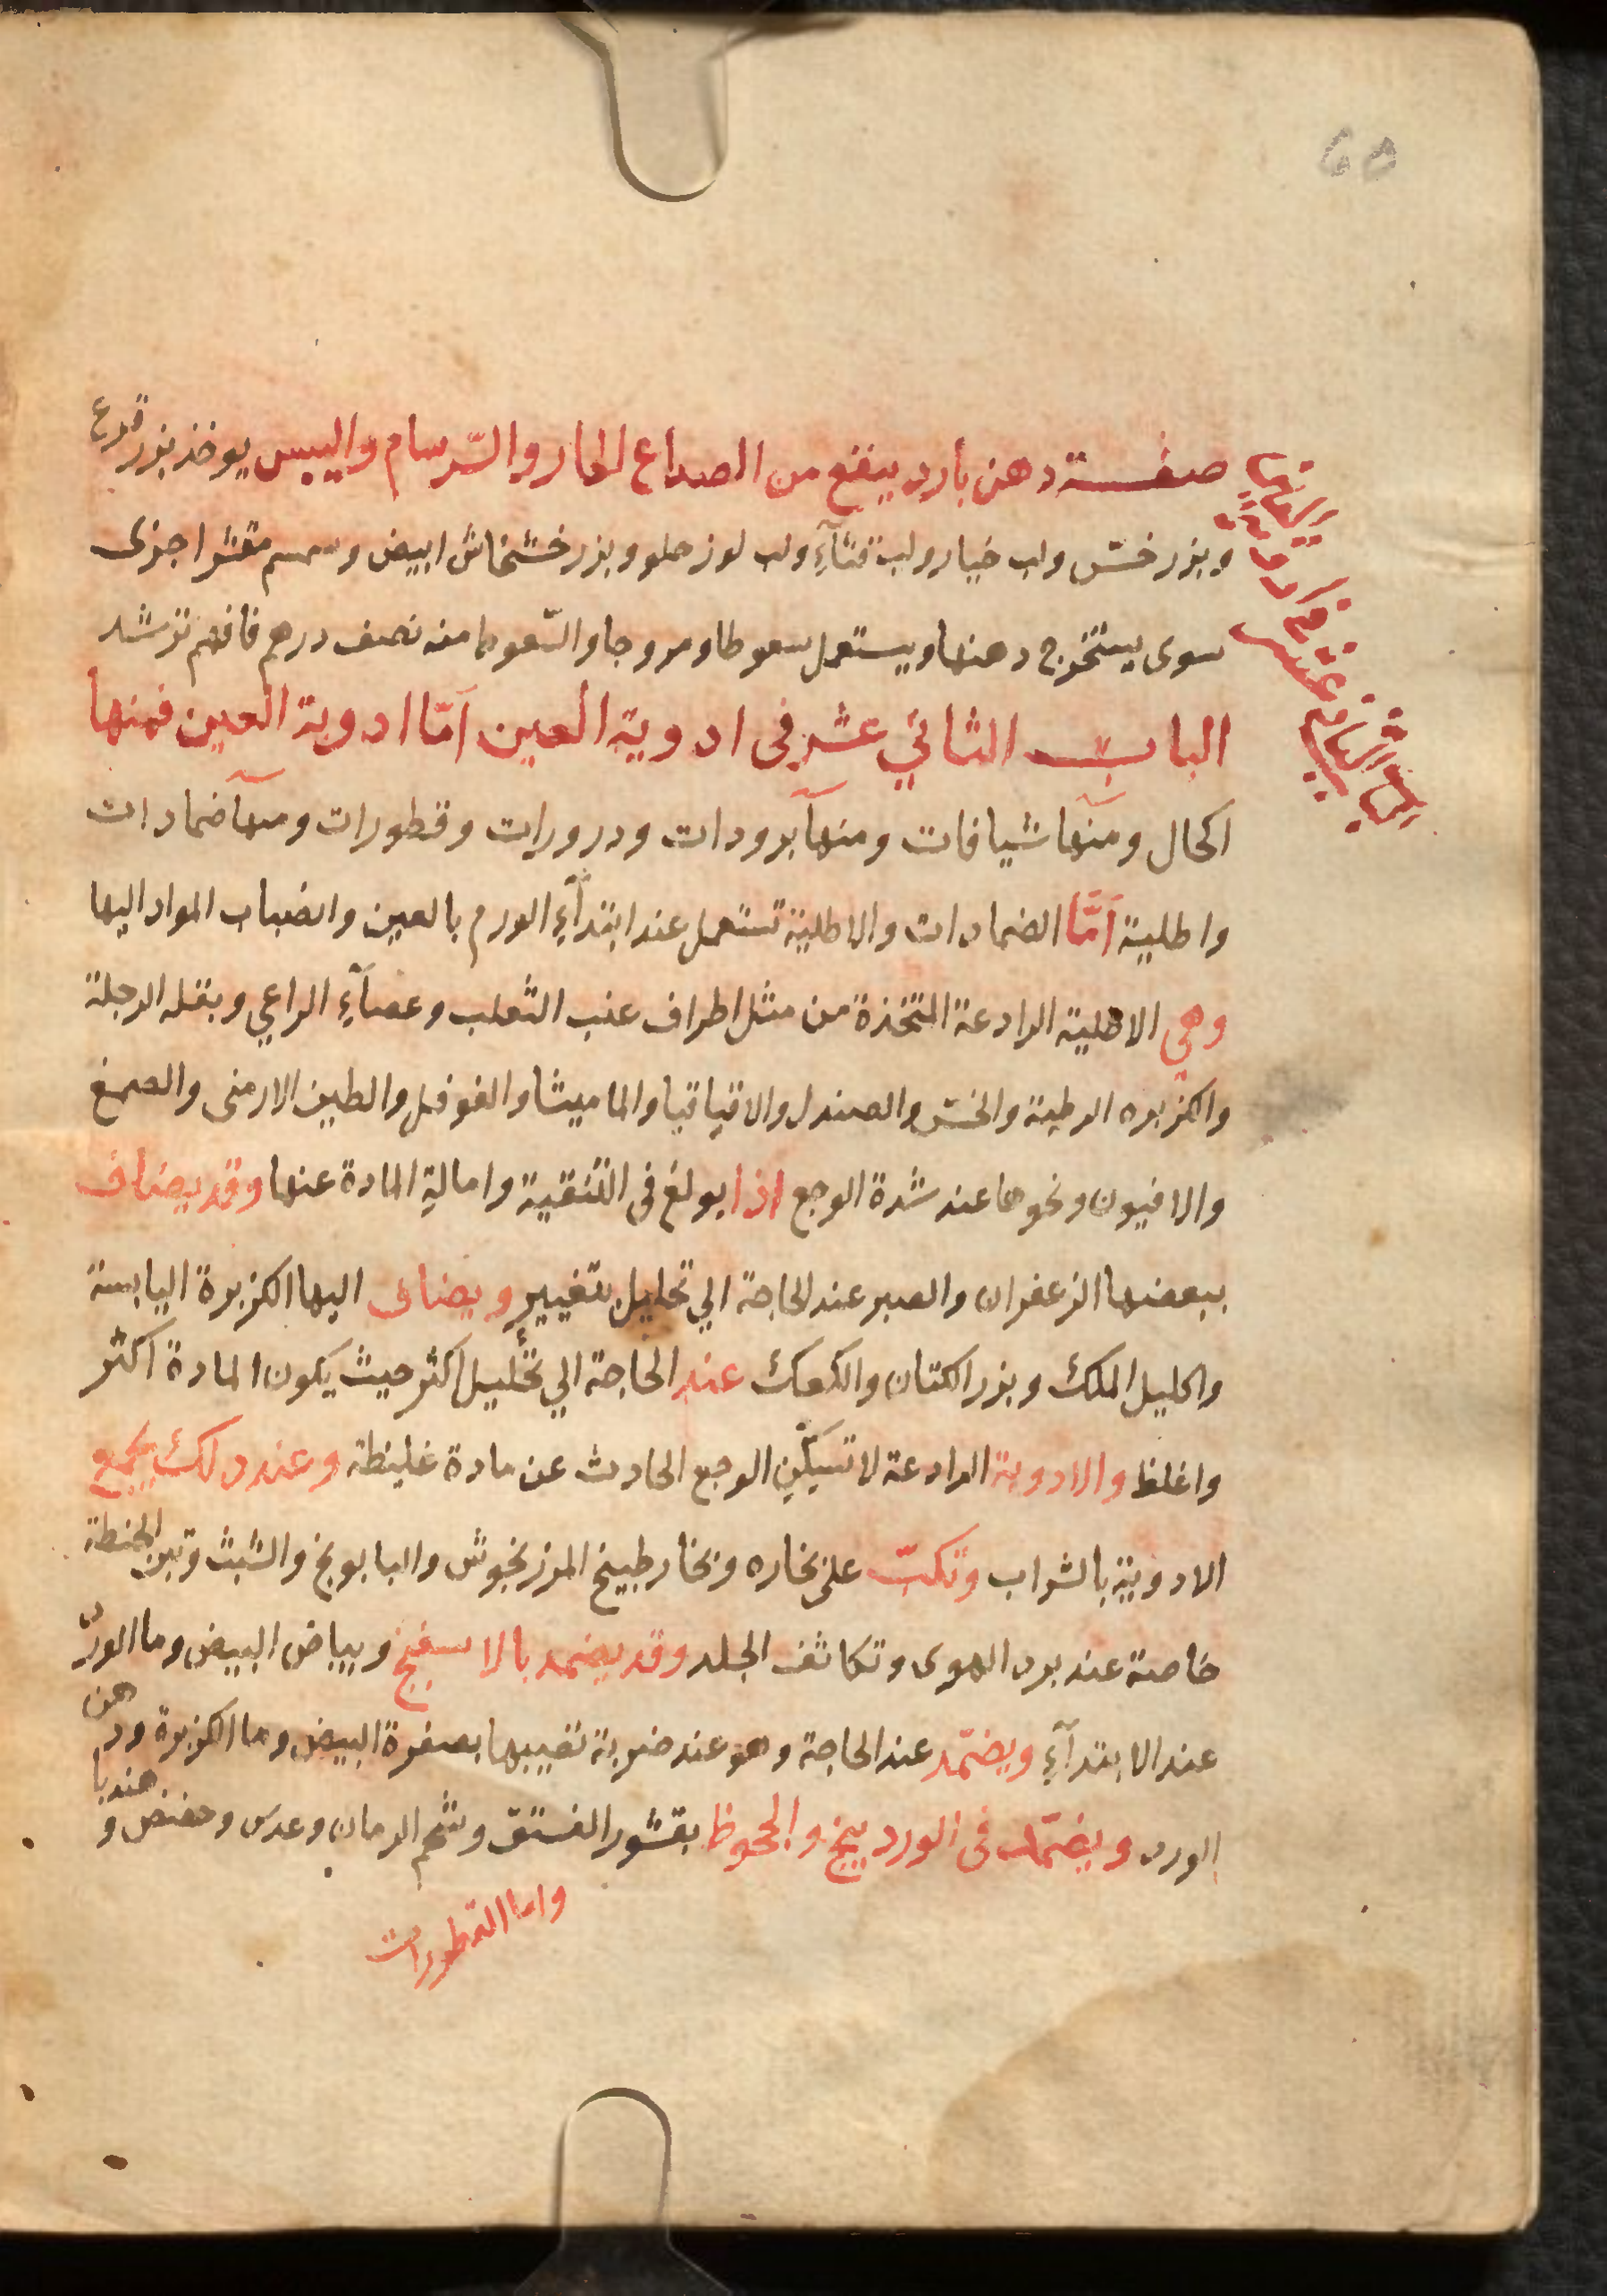 60
صفة دهن بارد ينفع من الصداع الحار والسّرسام واليبس يوخذ بزر قرع
وبزر خسّ ولب خيار ولب قثآءِ ولب لوز حلو وبزر خشخاش ابيض وسمسم مقشر اجزى
سوى يستخرج دهنها ويستعمل سعوطا ومروجا والسّعوط منه نصف درهم فافهم ترشد
الباب الثاني عشر فى ادوية العين امّا ادوية العين فمنها
اكحال ومنها شيافات ومنها برودات ودرورات وقطورات ومنها ضمادات
واطلية امّا الضمادات والاطلية تستعمل عند ابتدآءِ الورم بالعين وانصباب المواد اليها
وهي الاطلية الرادعة المتخذة من مثل اطراف عنب الثعلب وعصآءِ الراعي وبقله الرجلة
والكزبره الرطبة والخسّ والصندل والاقياقيا والماميثا والفوفل والطين الارمنى والصمغ
والافيون ونحوها عند شدة الوجع اذا بولغ فى التنقية وامالة المادة عنها وقد يضاف
ببعضها الزعفران والصبر عند الحاجة الي تحليل بتغيير ويضاف اليها الكزبرة اليابسة
واكليل الملك وبزر الكتان والكعك عند الحاجة الي تحليل اكثر حيث يكون المادة اكثر
واغلظ والادوية الرادعة لا تسكّن الوجع الحادث عن مادة غليظة وعند دلك يجمع
الادوية بالشراب وتكبّ على بخاره وبخار طبيخ المرزنجوش والبابونج والشبث وتبن الحنطة
خاصة عند برد الهوى وتكاثف الجلد وقد يضمد بالاسفنج وبياض البيض وما الورد
عند الابتدآءِ ويضمّد عند الحاجة وهو عند ضربة تصيبها بصفرة البيض وما الكزبرة ودهن
الورد ويضمّد فى الوردينج والجحوظ بقشور الفستق وشحم الرمان وعدس وحضض وهندبا
واما القطورات
الباب الثاني عشر في ادوية